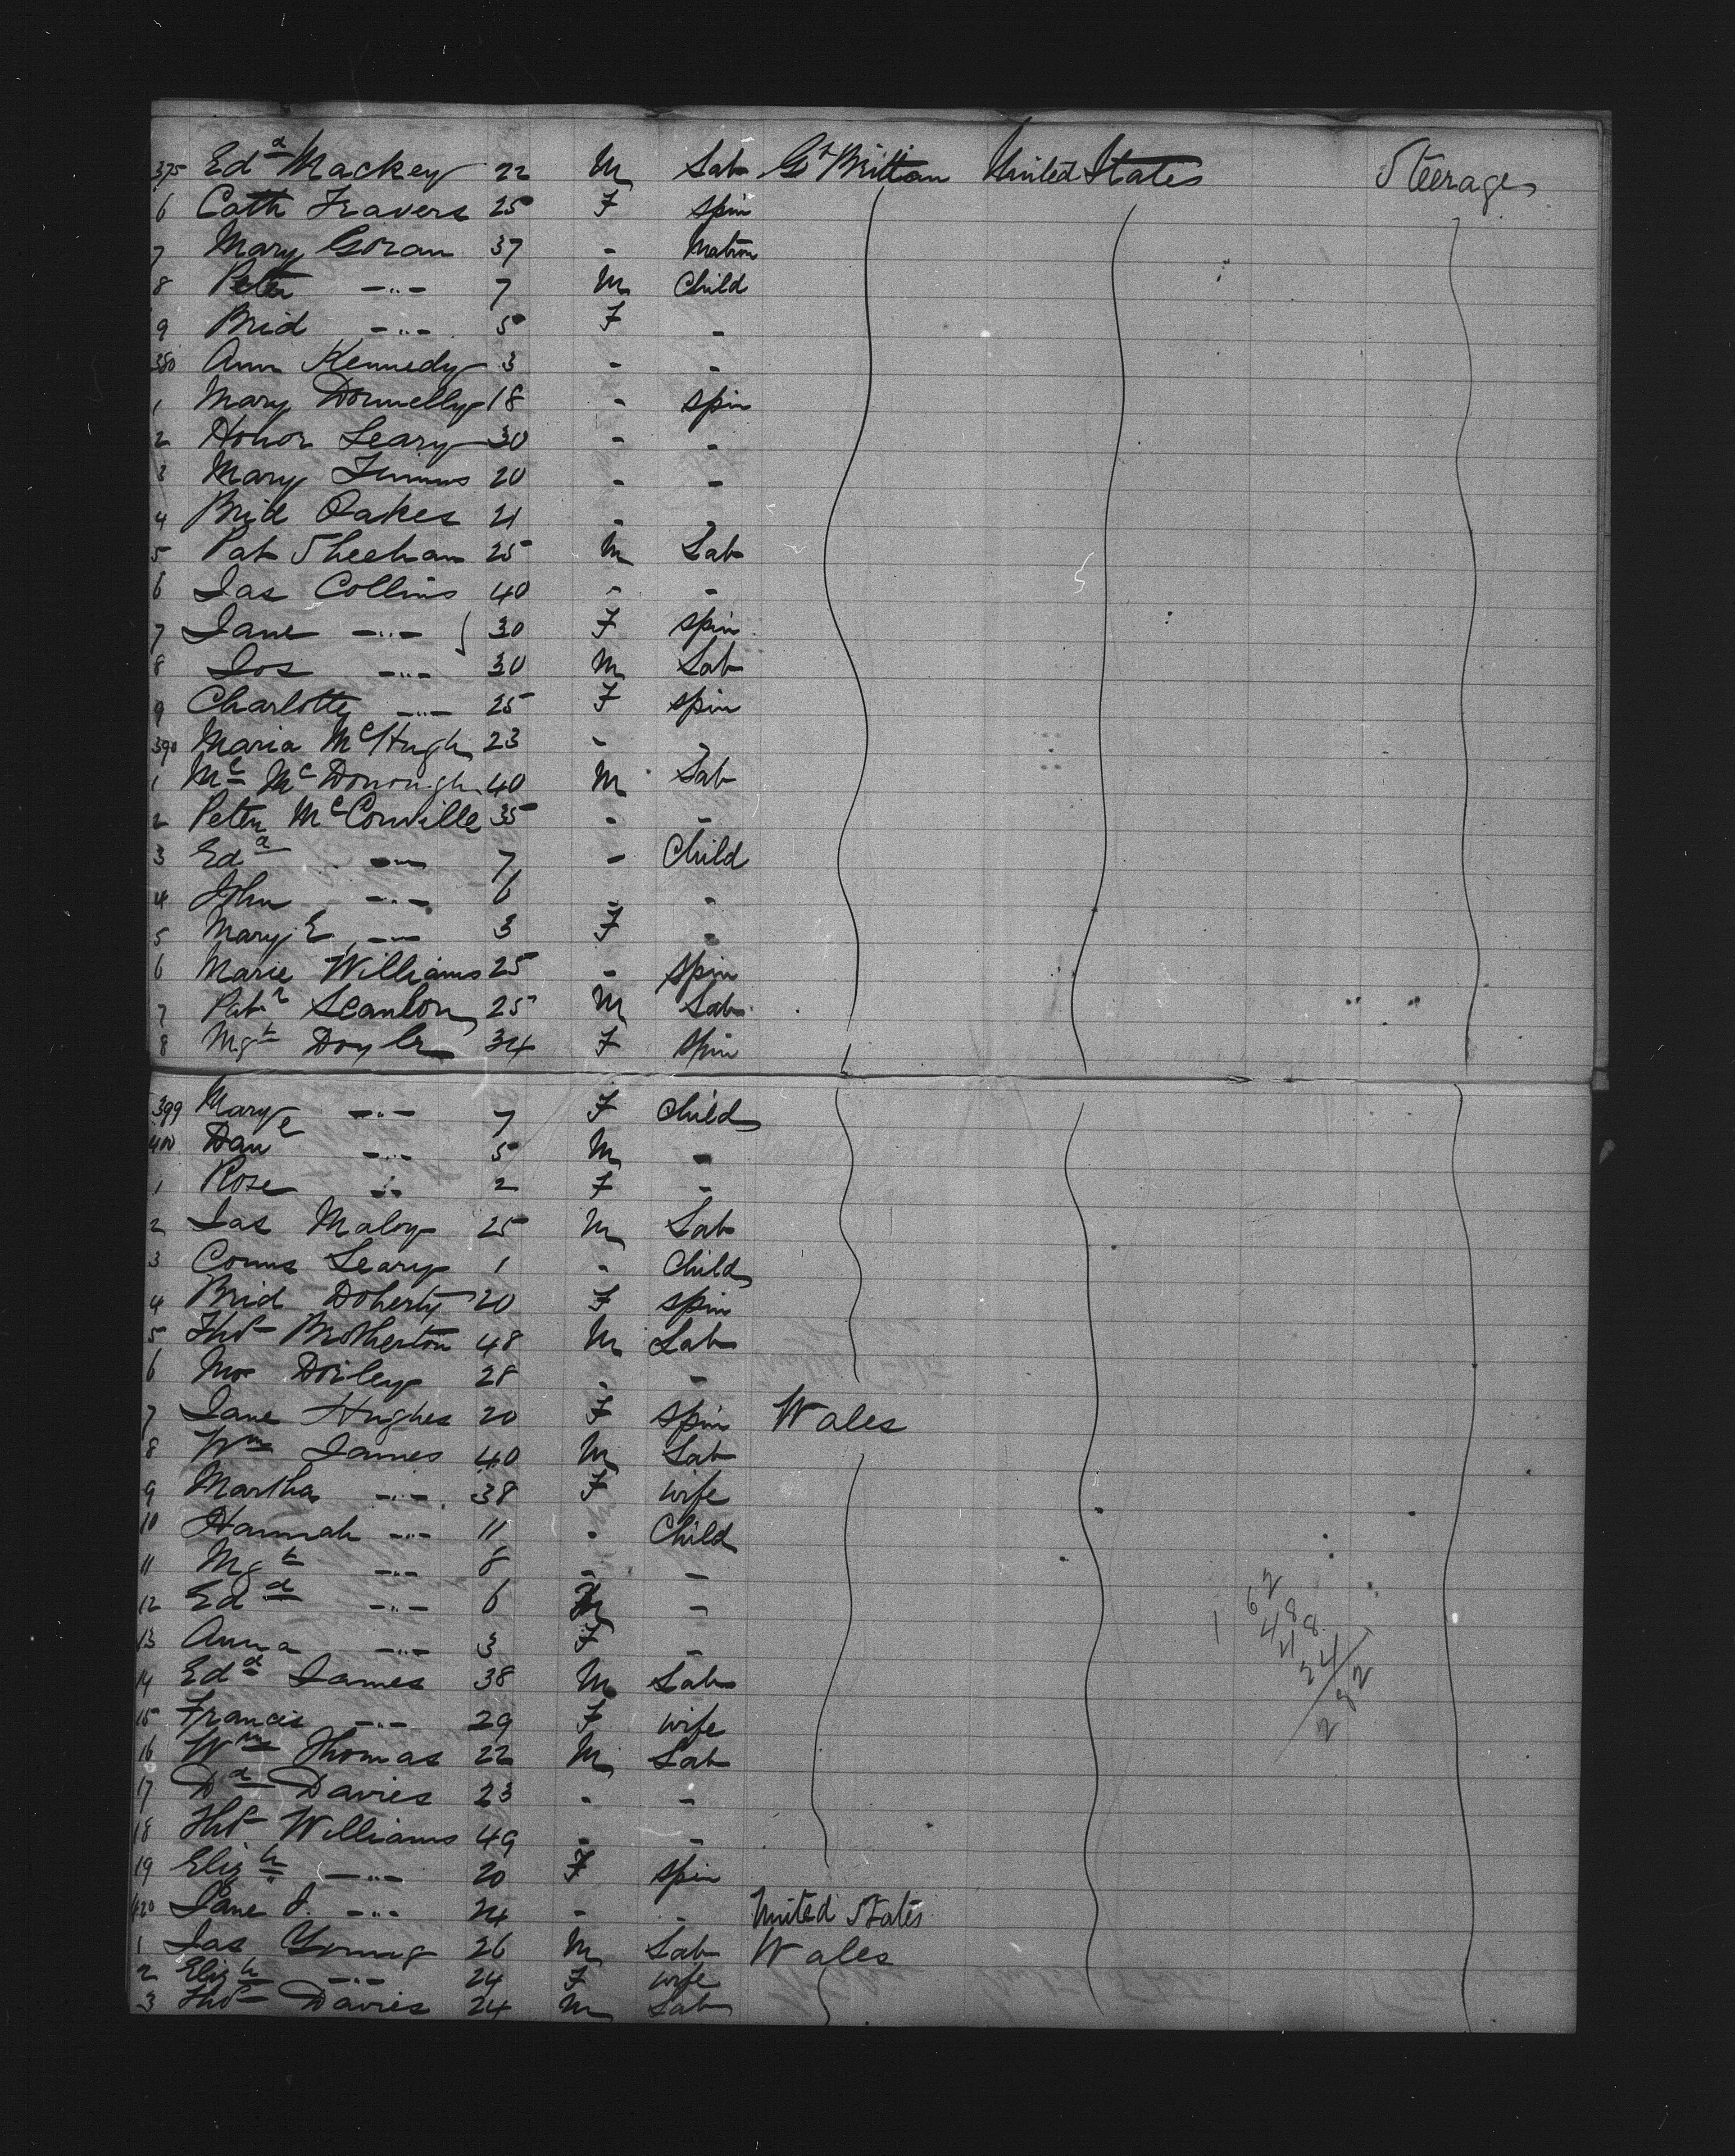 375 Edd Mackey 22 M Lab Gt Brittan United States Steerage
6 Cath Travers 25 F Spin
7 Mary Goran 37 - Matron
8 Peter -"- 7 M Child
9 Brid -"- 5 F -
380 Ann Kennedy 3 - -
1 Mary Donnelly 18 - Spin
2 Honor Leary 30 - -
3 Mary 20 - -
4 Brid Oakes 21 -
5 Pat Sheehan 25 M Lab
6 Jas Collins 40 - -
7 Jane -"- 30 F Spin
8 Jos -"- 30 M Lab
9 Charlotte -"- 25 F Spin
390 Maria McHugh 23 -
1 Ml McDonough 40 M Lab
2 Peter McConville 35 - -
3 Edd -"- 7 - Child
4 John -"- 6 - -
5 Mary E -"- 3 F -
6 Marie Williams 25 - Spin
7 Patk Scanlon 25 M Lab
8 Mgt Doyle 34 F Spin
399 Mary -"- 7 F Child
400 Danl -"- 5 M -
1 Rose -"- 2 F -
2 Jas Maloy 25 M Lab
3 Corns Leary 1 - Child
4 Brid Doherty 20 F Spin
5 Thos Brotherton 48 M Lab
6 Doiley 28 - -
7 Jane Hughes 20 F Spin Wales
8 Wm James 40 M Lab
9 Martha -"- 38 F wife
10 Hannah -"- 11 - Child
11 Mgt -"- 8 - -
12 Edd -"- 6 M -
13 Anna -"- 3 F -
14 Edd James 38 M Lab
15 Francis -"- 29 F wife
16 Wm Thomas 22 M Lab
17 Dd Davies 23 - -
18 Thos Williams 49 - -
19 Elizh -"- 20 F Spin
420 Jane J. -"- 24 - - United States
1 Jas Young 26 M Lab Wales
2 Elizh -"- 24 F wife
3 Thos Davies 24 M Lab